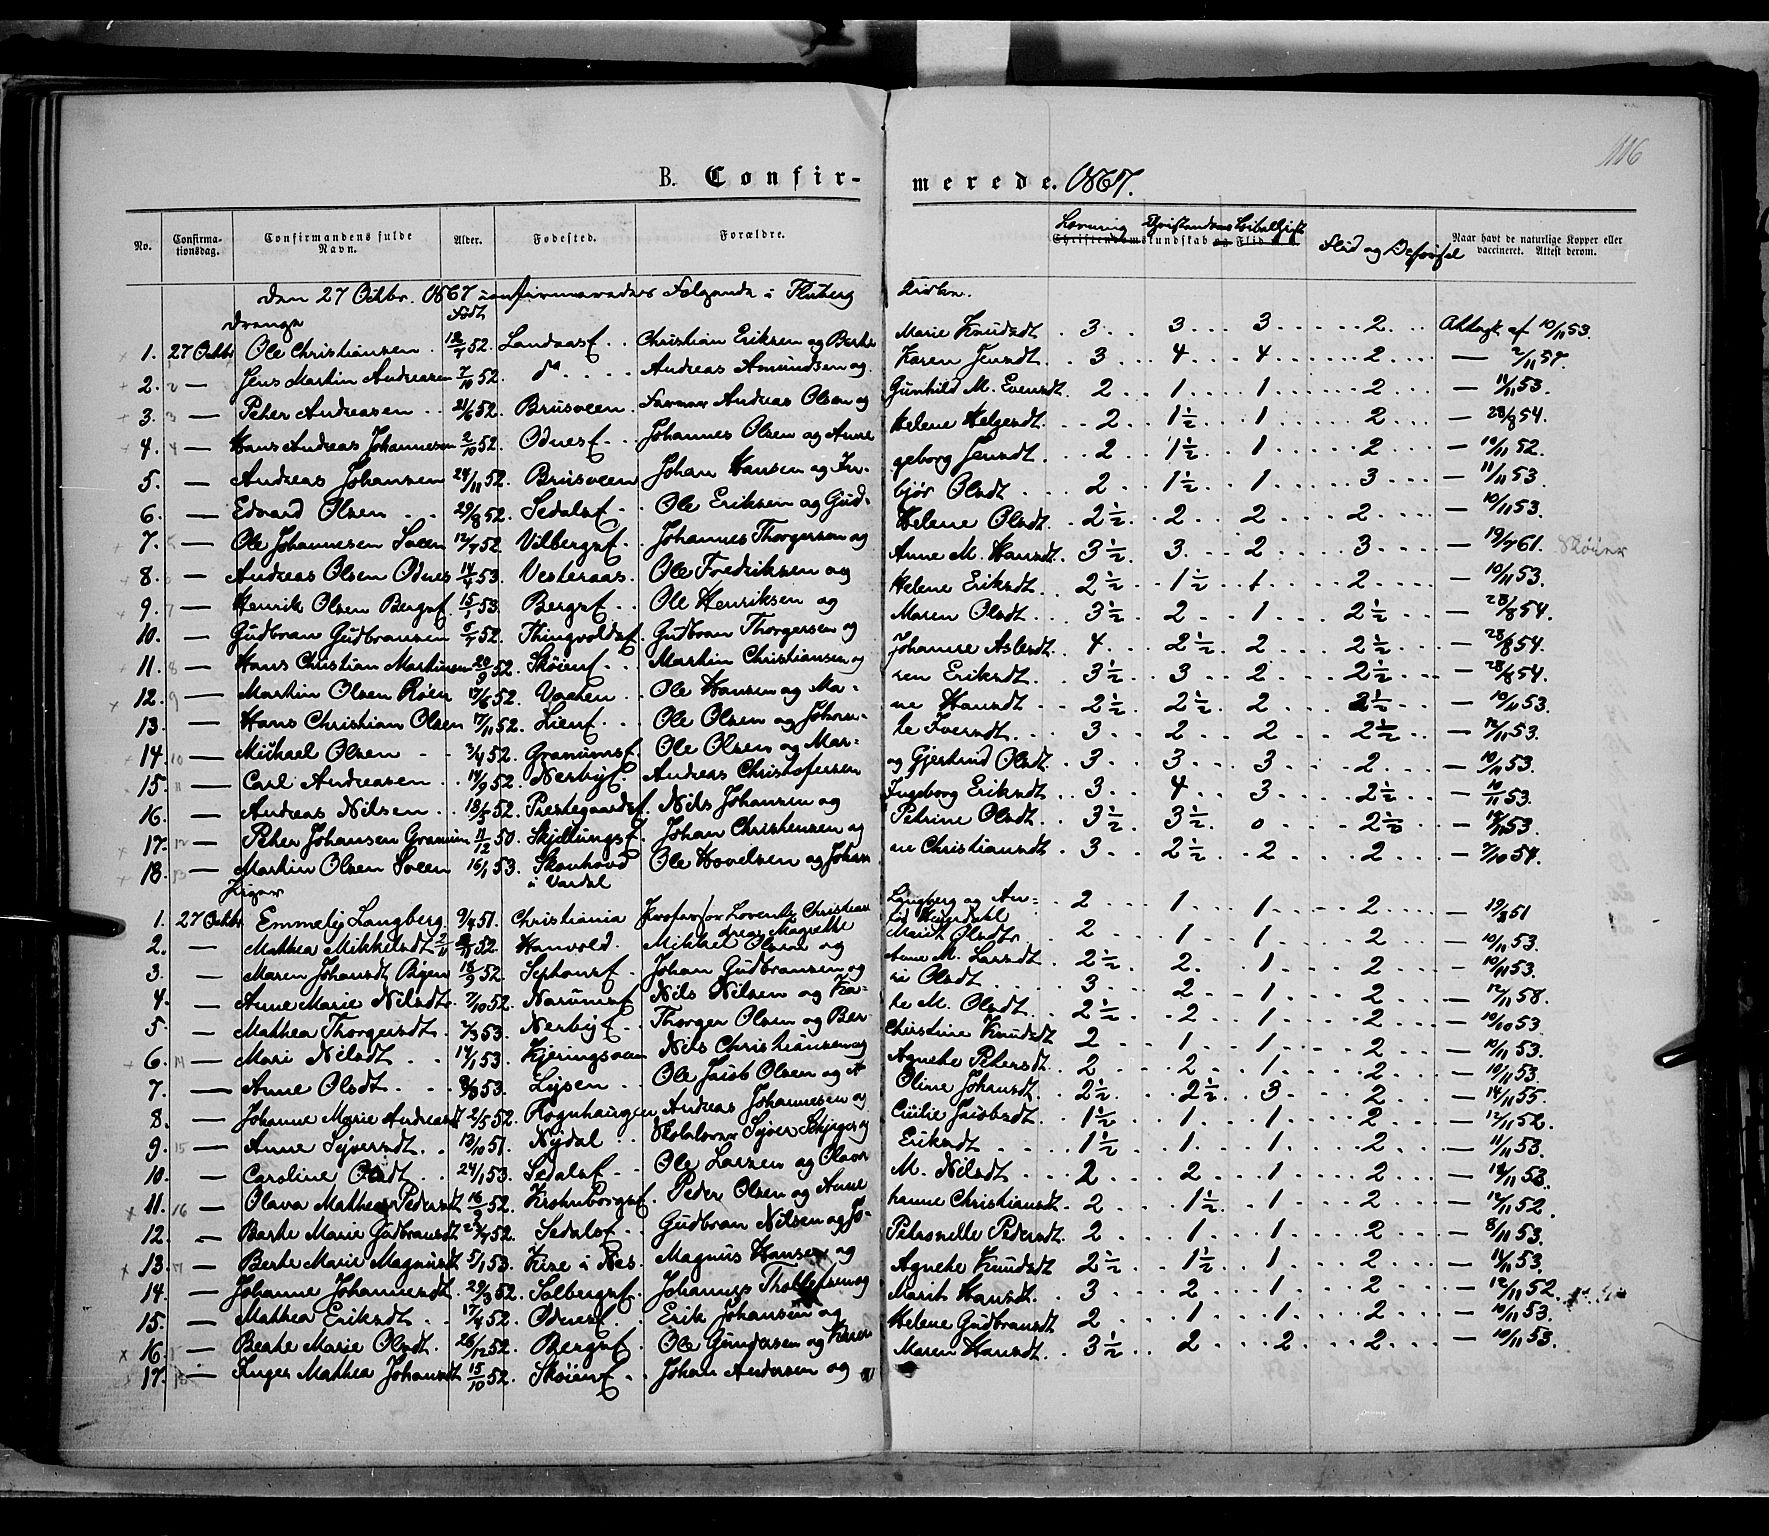 116
B. Confir- merede. 1867.
No. Confirma-tionsdag. Confirmandens fulde Navn. Alder. Fødested. Forældre. Christendomskundskab og Flid Flid og Naar havt de naturlige Kopper eller vaccineret. Attest derom.
Den 27 Octbr. 1867 confirmeredes Følgende i Fluberg Kirke.
Drenge Født
1. 27 Octbr Ole Christiansen 52. Landaasf. Christian Eriksen og Berthe Marie Knudsdt 3 3 3 2 Attest af 10/11 53.
2. — Jens Martin Andreasen 7/10 52. do Andreas Amundsen og Karen Jensdt 3 4 4 2 — 2/11 57.
3. — Peter Andreasen 21/6 52. Brusveen Andreas Olsen og Gunhild M. Evensdt 2 1 1 2 — 11/11 53.
4. — Hans Andreas Johannesen 2/10 52. Odnesf. Johannes Olsen og Anne Helene Helgesdt 2 1½ 1 2 — 28/8 54.
5. — Andreas Johansen 24/11 52. Brusveen Johan Hansen og In-geborg Jensdt 2 1½ 1 2 — 10/11 52.
6. — Edvard Olsen 29/8 52. Sedalsf. Ole Eriksen og Gud-bjør Olsdt 2 1½ 1 3 — 11/11 53.
7. — Ole Johannesen Soleen 12/7 52. Vilbergsf. Johannes Thorgersen og Helene Olsdt 2½ 2 2 2 — 10/11 53.
8. — Andreas Olsen Odnes 14/4 53. Vesteraas. Ole Fredriksen og Anne M. Hansdt 3½ 3 2 3 — 19/7 61. Skøien
9. — Henrik Olsen Bergsf. 15/1 53. Bergsf. Ole Henriksen og Helene Eriksdt 2½ 1½ 1 2 — 10/11 53.
10. — Gudbran Gudbransen 52. Thingvoldsf. Gudbran Thorgersen og Maren Olsdt 3½ 2 1 2½ — 28/8 54.
11. — Hans Christian Martinsen 20/9 52. Skøienf. Martin Christiansen og Johanne Aslesdt 4 2½ 2 2½ — 28/8 54.
12. — Martin Olsen Røien 17/6 52. Vaaten Ole Hansen og Ma-ren Eriksdt 3½ 3 2 2½ — 28/8 54.
13. — Hans Christian Olsen 17/11 52. Lienf. Ole Olsen og Johan-ne Hansdt 2½ 2½ 2 2½ — 10/11 53.
14. — Michael Olsen 3/4 52. Granumsf. Ole Olsen og Mar-te Iversdt 3 2 2 2½ — 12/11 53.
15. — Carl Andreasen 14/9 52. Nerbyf. Andreas Christofersen og Gjertrud Olsdt 3 3 3 2 — 10/11 53.
16. — Andreas Nilsen 18/5 52. Prestegaardsf. Nils Johansen og Ingeborg Eriksdt 3 4 3 2½ — 10/11 53.
17. — Peter Johansen Granum 11/12 50. Skjellungsf. Johan Christensen og Petrine Olsdt 3½ 3½ 0 2½ — 53.
18. — Martin Olsen Soleen 16/1 53. Skonhovd i Vardal Ole Hovelsen og Johan-ne Christiansdt 3 2½ 2 2 — 7/10 54.
Piger
1. 27 Octbr Emmely Langberg 9/4 51. Christiania Professor Lorentz Christian Langberg og 2 1 1 2 — 19/8 51
2. — Mathea Mikkelsdt 52. Hanvold. Mikkel Olsen og Marit Olsdtr 2 1 1 2 — 10/11 53.
3. — Maren Johansdt Røien 18/9 52. Sephansf. Johan Gudbransen og Anne M. Larsdt 2½ 2 1 2 — 10/11 53.
4. — Anne Marie Nilsdt. 7/10 52. Narumsf. Nils Nilsen og Ka-ri Olsdt 3 2 1 2 — 12/11 58.
5. — Mathea Thorgersdt. 7/3 53. Nerbyf. Thorger Olsen og Ber-te M. Olsdt 2½ 2 1 2 — 10/10 53.
6. — Mari Nilsdt 14/1 53. Kjeringsveen Nils Christiansen og Christine Knudsdt 2 1 1 2 — 10/11 53.
7. — Anne Olsdt 53. Lysen Ole Jacob Olsen og Agnethe Petersdt 2 2 1 2 — 10/11 53.
8. — Johanne Marie Andreasdt 2/5 52. Rognhaugen Andreas Johannesen og Oline Johansdt 2½ 2½ 3 2 — 14/11 55.
9. — Anne Syversdt. 13/10 51. Nydal Skolelærer Syver og Cicilie Jacobsdt 1½ 1 1 2 — 12/11 52.
10. — Caroline Olsdt 24/1 53. Sedalsf. Ole Larsen og Olava Eriksdt 1½ 1 1 2 — 11/11 53.
11. — Olava Mathea Pedersdt 16/9 52. Krohnborgsf. Peder Olsen og Anne M. Nilsdt 2 2 1 2 — 14/11 53.
12. — Berthe Marie Gudbransdt 52. Sedalsf. Gudbran Nilsen og Jo-hanne Christiansdt 2 1½ 1 2 — 12/11 52.
13. — Berthe Marie Magnusdt 5/1 53. Kise i Nes. Magnus Hansen og Petronelle Pedersdt 2 1 1 2 — 8/11 53.
14. — Johanne Johannesdt. 29/3 52. Solbergsf. Johannes Thollefsen og Agnethe Knudsdt 2½ 1½ 1 2 — 14/11 53.
15. — Mathea Eriksdt 17/4 52. Odnesf. Erik Johansen og Marit Hansdt 3 2 1 2 — 12/11 52.
16. — Berthe Marie Olsdt. 26/12 52. Bergsf. Ole Gundersen og Karen Helene Gudbransdt 2 1 1 2 — 10/11 53.
17. — Inger Mathea Johansdt 15/10 52. Skøienf. Johan Andersen og Maren Hansdt 3½ 2 2 2 — 10/11 53.